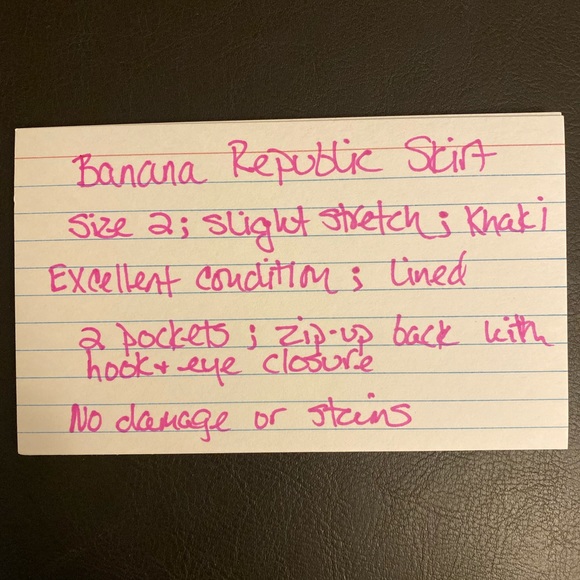 Banana Republic Skirt
Size 2; slight stretch; Khaki
Excellent condition; lined
2 pockets; zip-up back with
hook + eye closure
No damage or stains